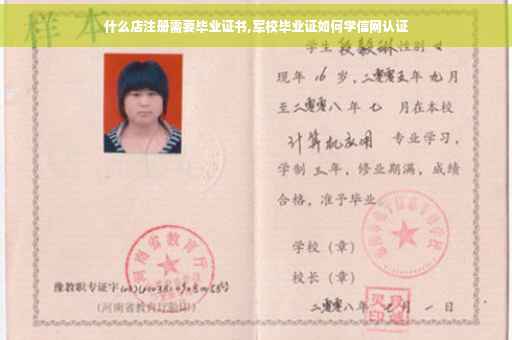 什么店注册需要毕业证书,军校毕业证如何学信网认证
样本
学生 段毅琳 性别 女
现年 16 岁,二零零五年 九月
至二零零八年 七 月在本校
计算机应用 专业学习,
学制 三 年,修业期满,成绩
合格,准予毕业
学校(章)
校长(章)
二零零八年 七 月 一 日
河南省教育厅
豫教职专证字
(河南省教育厅验印)